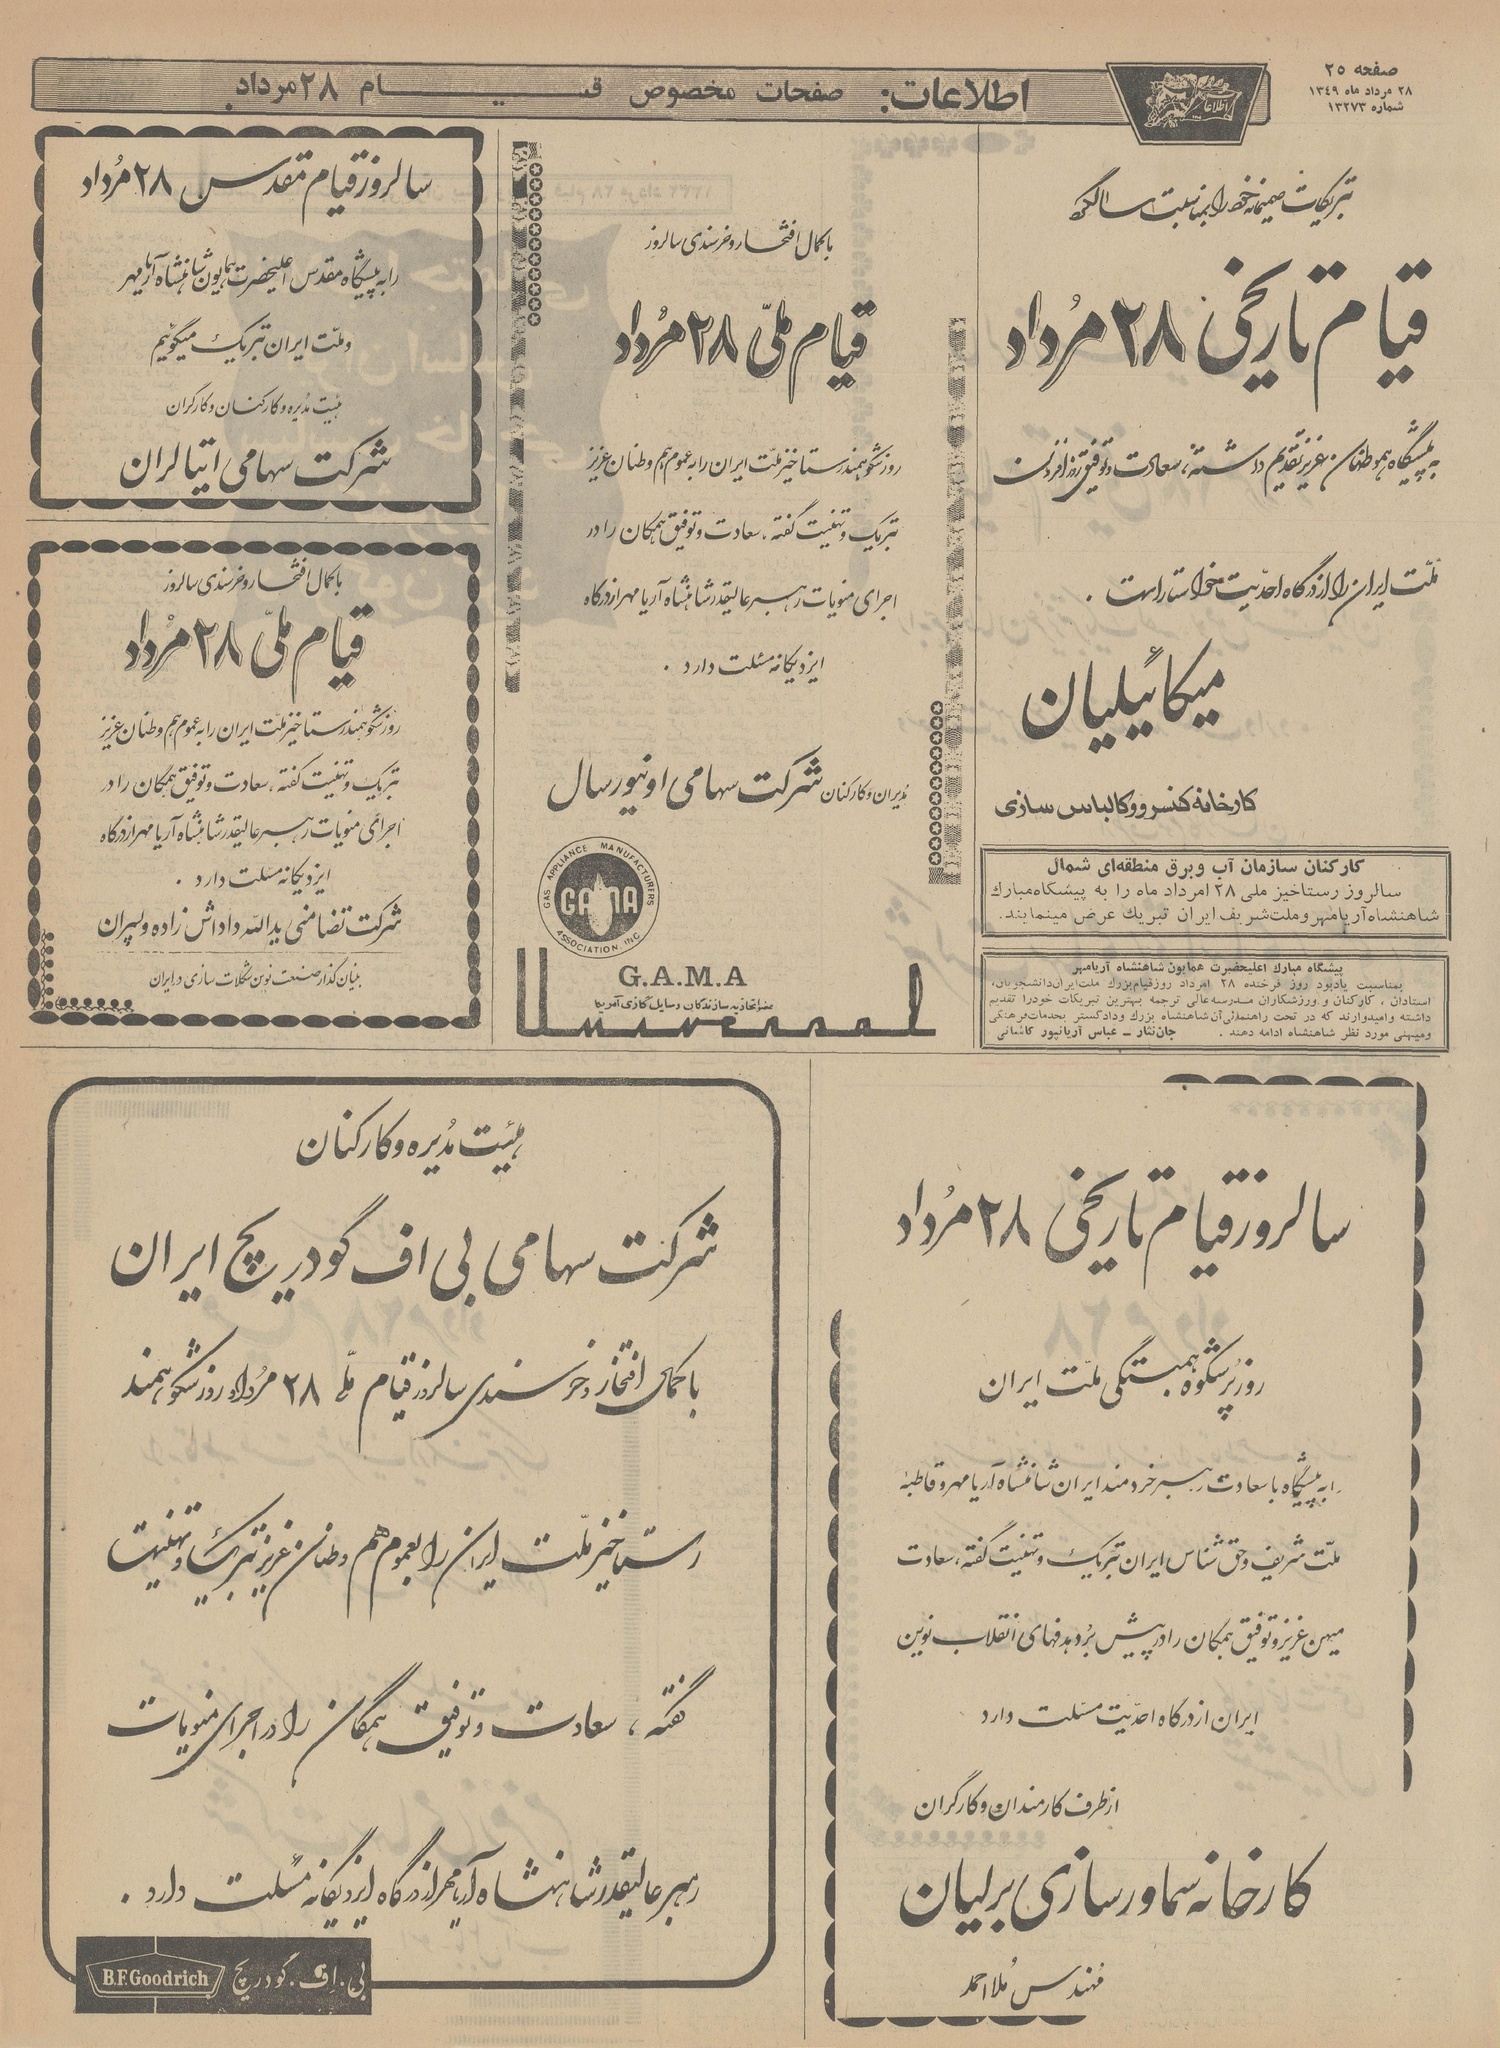 صفحه ۲۵
۲۸ مرداد ماه ۱۳۴۹
شماره ۱۳۲۷۳
اطلاعات
اطلاعات: صفحات مخصوص قیام ۲۸ مرداد
تبریکات صمیمانه خود را بمناسبت سالگرد
قیام تاریخی ۲۸ مرداد
به پیشگاه هموطنان عزیز تقدیم داشته، سعادت و توفیق روزافزون
ملت ایران را از درگاه احدیت خواستار است .
میکائیلیان
کارخانه کنسرو و کالباس سازی
کارکنان سازمان آب و برق منطقه‌ای شمال
سالروز رستاخیز ملی ۲۸ امرداد ماه را به پیشگاه مبارك
شاهنشاه آریامهر و ملت شریف ایران تبریك عرض مینمایند.
پیشگاه مبارك اعلیحضرت همایون شاهنشاه آریامهر
بمناسبت یادبود روز فرخنده ۲۸ امرداد روز قیام بزرك ملت ایران دانشجویان،
استادان ، کارکنان و ورزشکاران مدرسه عالی ترجمه بهترین تبریکات خود را تقدیم
داشته و امیدوارند که در تحت راهنمائی آن شاهنشاه بزرك و دادگستر بخدمات فرهنگی
و میهنی مورد نظر شاهنشاه ادامه دهند . جان‌نثار ــ عباس آریانپور کاشانی
با کمال افتخار و خرسندی سالروز
قیام ملّی ۲۸ مُرداد
روز شکوهمند رستاخیز ملت ایران را به عموم هم وطنان عزیز
تبریک و تهنیت گفته ، سعادت و توفیق همگان را در
اجرای منویات رهبر عالیقدر شاهنشاه آریامهر از درگاه
ایزد یگانه مسئلت دارد .
مدیران و کارکنان شرکت سهامی اونیورسال
GAS APPLIANCE MANUFACTURERS ASSOCIATION, INC
GAMA
G.A.M.A
عضو اتحادیه سازندگان وسایل گازی آمریکا
Universal
سالروز قیام مقدس ۲۸ مُرداد
را به پیشگاه مقدس اعلیحضرت همایون شاهنشاه آریامهر
و ملت ایران تبریک میگوئیم
هیئت مدیره و کارکنان و کارگران
شرکت سهامی ایتالران
با کمال افتخار و خرسندی سالروز
قیام ملّی ۲۸ مُرداد
روز شکوهمند رستاخیز ملت ایران را به عموم هم وطنان عزیز
تبریک و تهنیت گفته ، سعادت و توفیق همگان را در
اجرای منویات رهبر عالیقدر شاهنشاه آریامهر از درگاه
ایزد یگانه مسئلت دارد .
شرکت تضامنی یدالله داداش زاده و پسران
بنیان گذار صنعت نوین شکلات سازی در ایران
سالروز قیام تاریخی ۲۸ مُرداد
روز پُرشکوه همبستگی ملّت ایران
را به پیشگاه با سعادت رهبر خردمند ایران شاهنشاه آریامهر و قاطبه
ملّت شریف و حق شناس ایران تبریک و تهنیت گفته ، سعادت
میهن عزیز و توفیق همگان را در پیش بُرد هدفهای انقلاب نوین
ایران از درگاه احدّیت مسئلت دارد
از طرف کارمندان و کارگران
کارخانه سماور سازی برلیان
مُهندس مُلا احمد
هیئت مُدیره و کارکنان
شرکت سهامی بی اف گودریچ ایران
با کمال افتخار و خرسندی سالروز قیام ملّی ۲۸ مُرداد روز شکوهمند
رستاخیز ملّت ایران را بعموم هم وطنان عزیز تبریک و تهنیت
گفته ، سعادت و توفیق همگان را در اجرای منویات
رهبر عالیقدر شاهنشاه آریامهر از درگاه ایزد یگانه مسئلت دارد .
B.F.Goodrich بی.اف.گودریچ